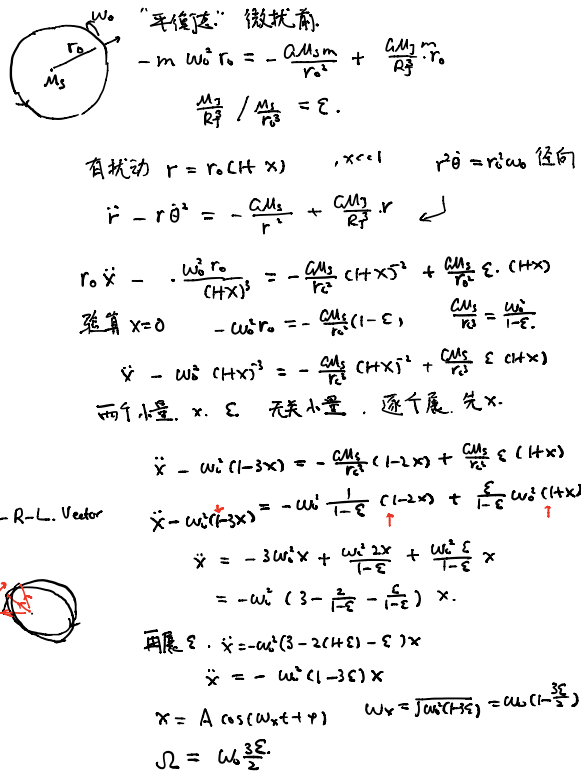 ω₀ "平衡态" 微扰前.
r₀
M_S
-m ω₀² r₀ = - GM_S m / r₀² + GM_J m / R_J³ · r₀
M_J / R_J³ / M_S / r₀³ = ε.
有扰动 r = r₀(1+x) , x<<1 r²θ̇ = r₀²ω₀ 径向
r̈ - rθ̇² = - GM_S / r² + GM_J / R_J³ · r
r₀ẍ - · ω₀² r₀ / (1+x)³ = - GM_S / r₀² (1+x)⁻² + GM_S / r₀² ε · (1+x)
验算 x=0 -ω₀² r₀ = - GM_S / r₀² (1-ε), GM_S / r₀³ = ω₀² / 1-ε.
ẍ - ω₀² (1+x)⁻³ = - GM_S / r₀³ (1+x)⁻² + GM_S / r₀³ ε (1+x)
两个小量. x. ε 无关小量. 逐个展. 先x.
ẍ - ω₀² (1-3x) = - GM_S / r₀³ (1-2x) + GM_S / r₀³ ε (1+x)
-R-L. Vector
ẍ - ω₀²(1-3x) = -ω₀² 1 / 1-ε (1-2x) + ε / 1-ε ω₀² (1+x)
ẍ = -3ω₀²x + ω₀² 2x / 1-ε + ω₀² ε / 1-ε x
= -ω₀² (3 - 2 / 1-ε - ε / 1-ε) x.
再展 ε. ẍ = -ω₀²(3-2(1+ε)-ε)x
ẍ = -ω₀² (1-3ε) x
x = A cos(ωₓt+φ) ωₓ = √ω₀²(1-3ε) = ω₀(1-3ε/2)
Ω = ω₀ 3ε / 2.